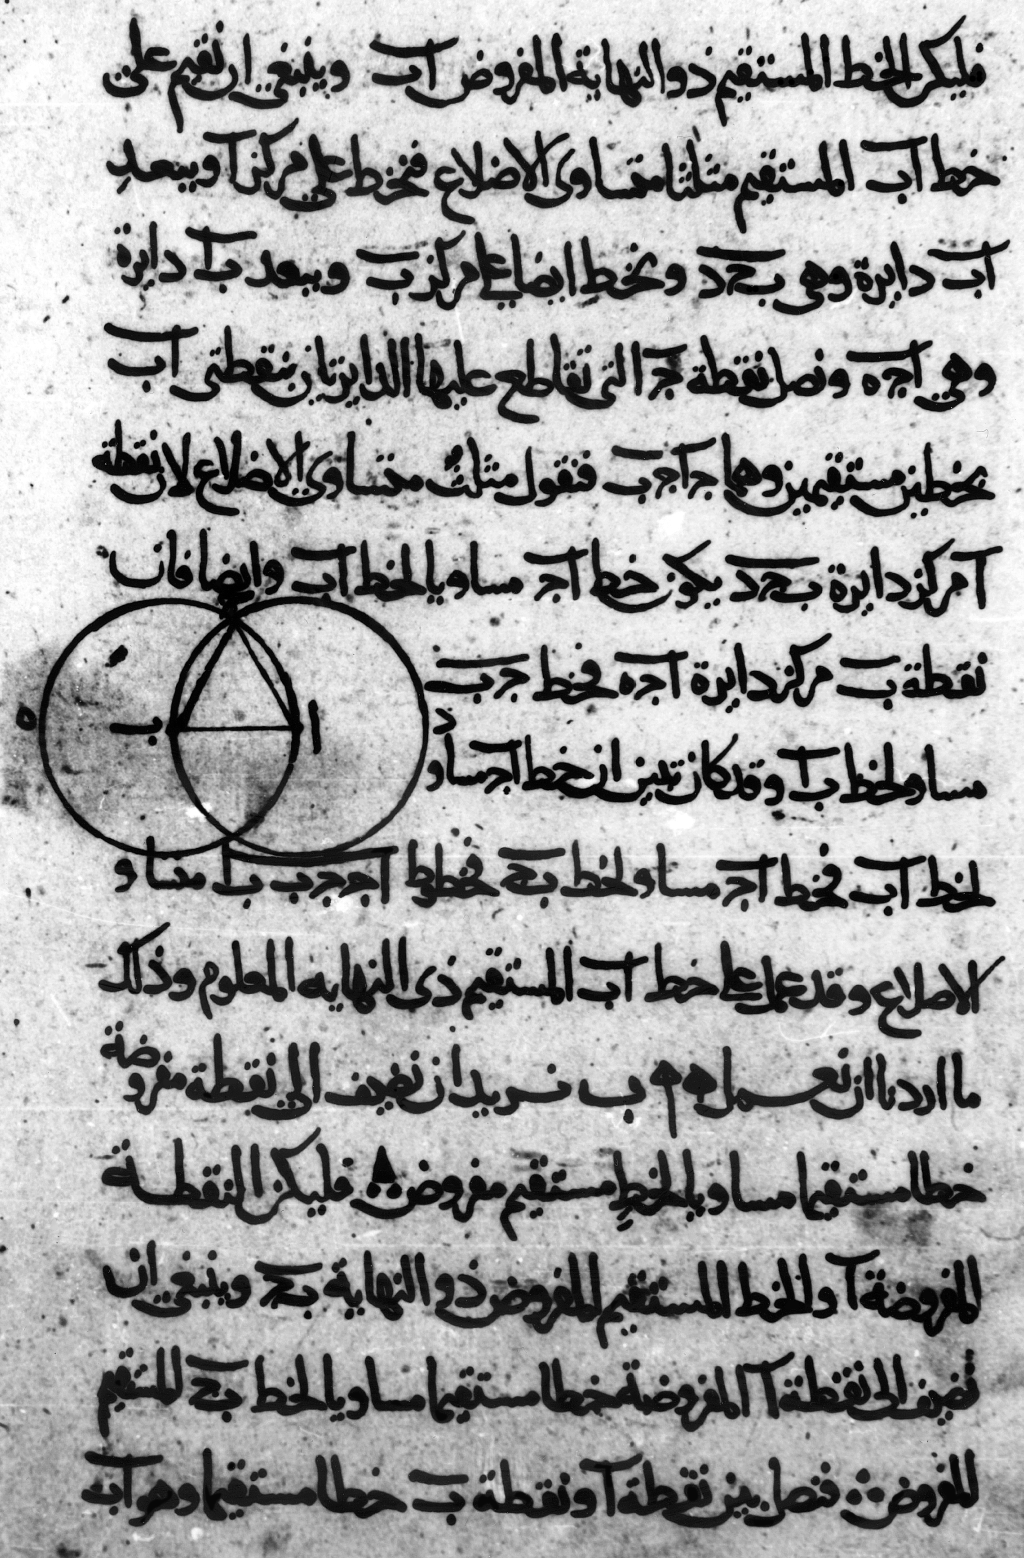 فليكن الخط المستقيم ذو النهاية المفروض اب وينبغي ان نقيم على
خط اب المستقيم مثلثا متساوى الاضلاع فنخط على مركز ا وببعد
اب دايرة وهي بجد ونخط ايضا على مركز ب وببعد با دايرة
وهي اجه ونصل نقطة ج التي تقاطع عليها الدايرتان بنقطتى اب
بخطين مستقيمين وهما جا جب فنقول مثلث متساوي الاضلاع لان نقطة
ا مركز دايرة بجد يكون خط اج مساويا لخط اب وايضا فان
نقطة ب مركز دايرة اجه فخط جب
مساو لخط با وقد كان تبين ان خط اج مساو
لخط اب فخط اج مساو لخط بج فخطوط اج جب با متساو
الاضلاع وقد عمل على خط اب المستقيم ذى النهايه المعلوم وذلك
ما اردنا ان نعمل ب نريد ان نضيف الى نقطة مفروضة
خطا مستقيما مساويا لخط مستقيم مفروض فليكن النقطة
المفروضة ا والخط المستقيم المفروض ذو النهاية بج وينبغي ان
نضيف الى نقطة ا المفروضة خطا مستقيما مساويا لخط بج المستقيم
المفروض فنصل بين نقطة ا ونقطة ب خطا مستقيما وهو اب
ا
ب
د
ه